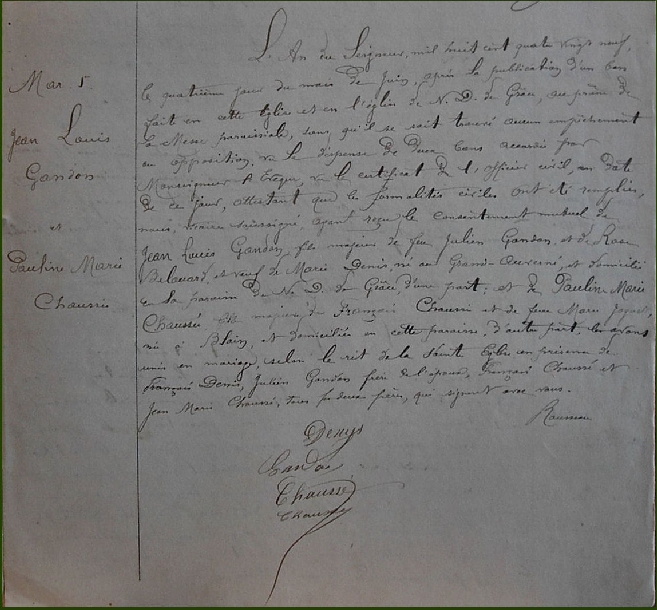 Mar. 5.
Jean Louis
Gandon
et
Pauline Marie
Chaussée
L'An du Seigneur, mil huit cent quatre vingt neuf,
le quatrième jour du mois de Juin, après la publication d'un ban
fait en cette Eglise et en l'église de N. D. de Grâce, au prône de
la Messe paroissiale, sans qu'il se soit trouvé aucun empêchement
ou opposition, vu la dispense de deux bans accordée par
Monseigneur l'Evêque, vu le certificat de l'officier civil, en date
de ce jour, attestant que les formalités civiles ont été remplies,
nous, soussigné, ayant reçu le consentement mutuel de
Jean Louis Gandon, fils majeur de feu Julien Gandon, et de Rose
et veuf de Marie Denis, né au Grand-Auverné, et domicilié
en la paroisse de N. D. de Grâce, d'une part; et de Pauline Marie
Chaussée fille majeure de François Chaussée et de feue Marie
née à Blain, et domiciliée en cette paroisse, d'autre part, les avons
unis en mariage selon le rit de la Sainte Eglise en présence de
François Denis, Julien Gandon frère de l'époux, François Chaussé et
Jean Marie Chaussé, tous qui signent avec nous.
Denys
Gandon
Chaussé
Chaussé